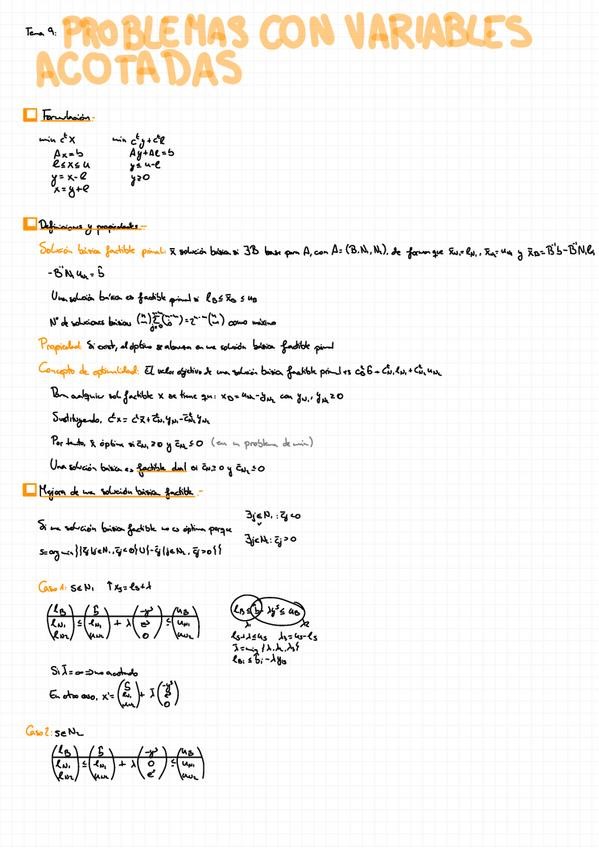 Tema 9: PROBLEMAS CON VARIABLES
ACOTADAS
Formulación.-
min cᵗx    min cᵗy+cᵗl
Ax=b    Ay+Al=b
l≤x≤u    y≤u-l
y=x-l    y≥0
x=y+l
Definiciones y propiedades.-
Solución básica factible primal: x̄ solución básica si ∃B base para A, con A=(B,N₁,N₂), de forma que x̄N₁=lN₁, x̄N₂=uN₂ y x̄B=B⁻¹b-B⁻¹N₁lN₁
-B⁻¹N₂uN₂=b̄
Una solución básica es factible primal si lB≤x̄B≤uB
Nº de soluciones básicas como máximo
Propiedad: Si existe, el óptimo se alcanza en una solución básica factible primal
Concepto de optimalidad: El valor objetivo de una solución básica factible primal es cᵗB b̄+cᵗN₁lN₁+cᵗN₂uN₂
Para cualquier sol factible x se tiene que: con yN₁, yN₂≥0
Sustituyendo, cᵗx=cᵗx̄+c̄ᵗN₁yN₁-c̄ᵗN₂yN₂
Por tanto, x̄ óptima si c̄N₁≥0 y c̄N₂≤0 (en un problema de min)
Una solución básica es factible dual si c̄N₁≥0 y c̄N₂≤0
Mejora de una solución básica factible.-
Si una solución básica factible no es óptima porque    ∃j∈N₁: c̄j<0
∃j∈N₂: c̄j>0
s=arg min{{c̄j|j∈N₁, c̄j<0}∪{-c̄j|j∈N₂, c̄j>0}}
Caso 1: s∈N₁ ↑xs=ls+λ
(lB lN₁ lN₂)≤(b̄ lN₁ uN₂)+λ(-yˢ eˢ 0)≤(uB uN₁ uN₂)
lB≤b̄-λyˢ≤uB
λ₁    λ₂
ls+λ≤us    λ₃=us-ls
λ̄=min{λ₁,λ₂,λ₃}
lBi≤b̄i-λyis
Si λ̄=∞⇒no acotado
En otro caso, x'=(b̄ lN₁ uN₂)+λ̄(-yˢ eˢ 0)
Caso 2: s∈N₂
(lB lN₁ lN₂)≤(b̄ lN₁ uN₂)+λ(-yˢ 0 eˢ)≤(uB uN₁ uN₂)